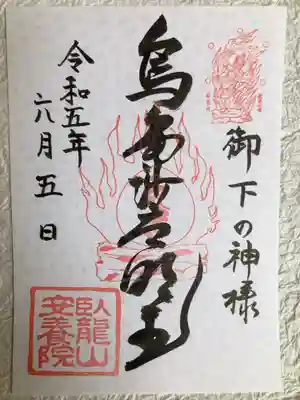 御下の神様
烏沙摩明王
令和五年
六月五日
臥龍山
安養院